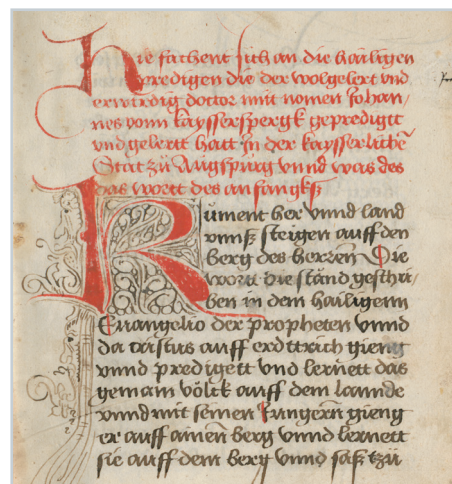 Hie fachent sich an die hailigen
predigen die der wolgelert vnd
erwirdig doctor mit nomen Johan/
nes vonn kayssersspergk gepredigtt
vnd gelertt hatt in der kaysserlichē
Statt zů Augspurg vnnd was des
das wortt des anfangks
Kument her vnnd land
vnnß steigen auff den
berg des herren Die
wortt die stand geschri/
ben in dem hailigenn
Euangelio der propheten vnnd
da cristus auff erdttrich gieng
vnnd predigett vnd lernett das
gemain völck auff dem lannde
vnnd mit seinen Jungern gieng
er auff ainen berg vnnd lernett
sie auff dem berg vnnd saß tzů